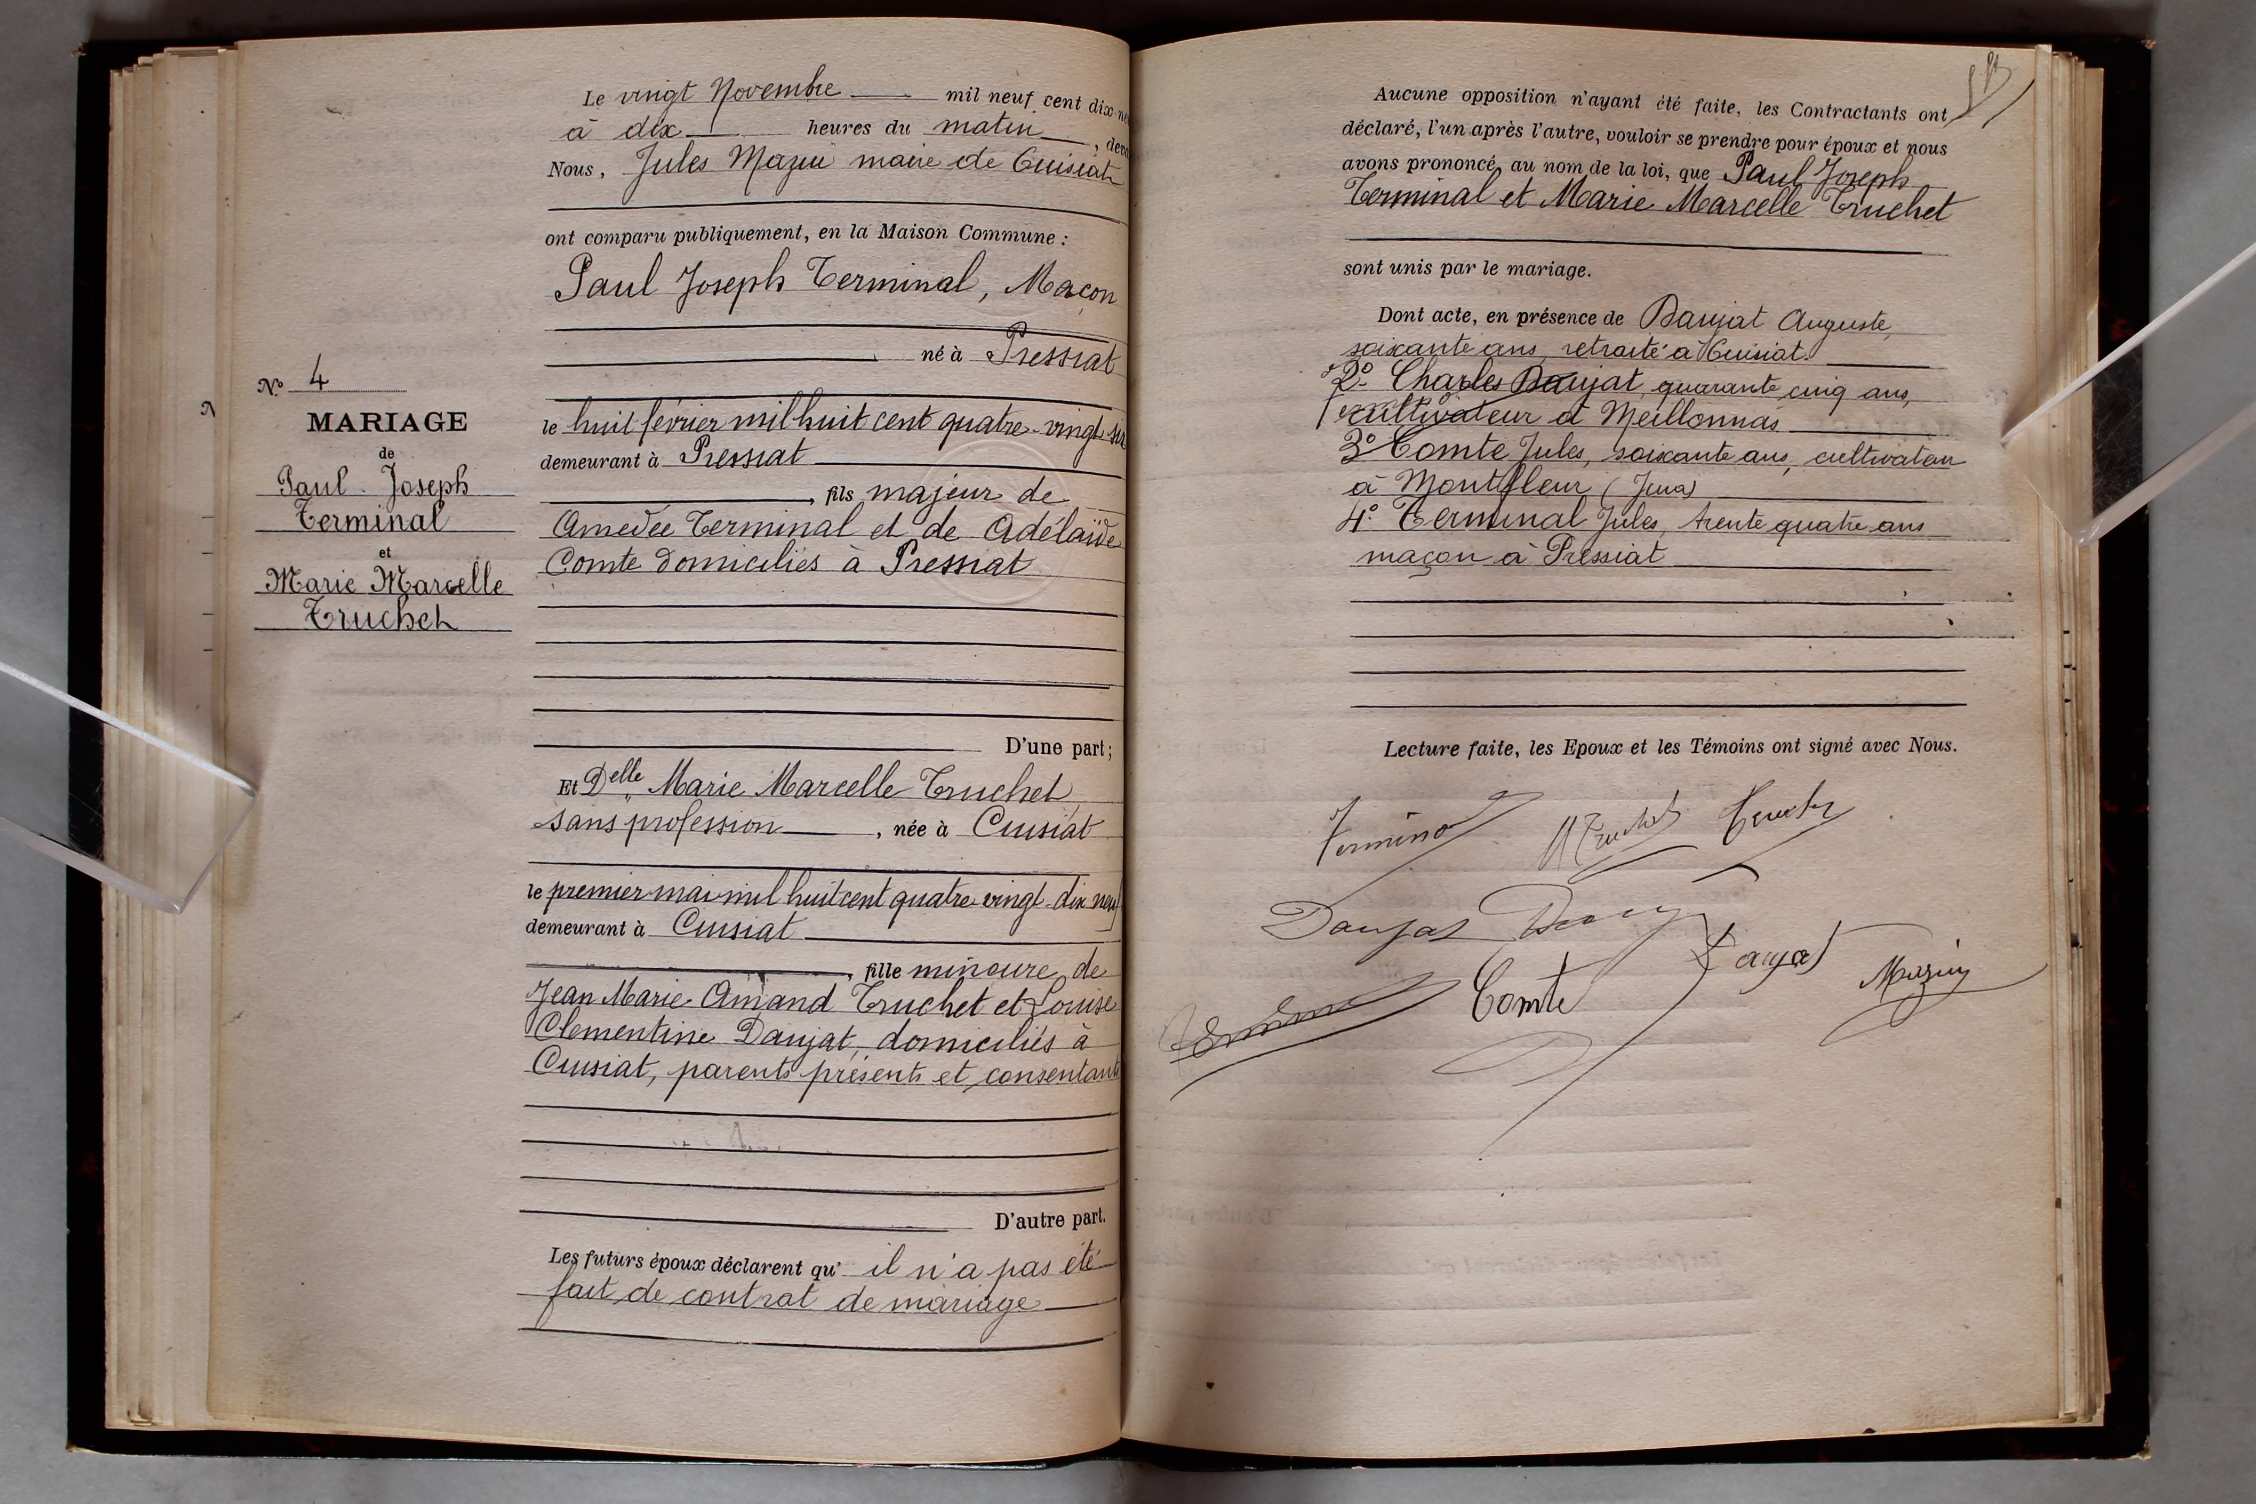 Le vingt Novembre mil neuf cent dix ne
à dix heures du matin, deva
Nous, Jules Mazuir maire de Cuisiat
ont comparu publiquement, en la Maison Commune :
Paul Joseph Terminal, Maçon
né à Pressiat
N° 4
MARIAGE
de
Paul Joseph
Terminal
et
Marie Marcelle
Truchet
le huit février mil huit cent quatre-vingt-six
demeurant à Pressiat
, fils majeur de
Amedée Terminal et de Adélaïde
Comte domiciliés à Pressiat
D'une part;
Et Delle Marie Marcelle Truchet
sans profession, née à Cuisiat
le premier mai mil huit cent quatre vingt-dix neuf
demeurant à Cuisiat
, fille mineure de
Jean Marie Amand Truchet et Louise
Clementine Daujat, domiciliés à
Cuisiat, parents présents et consentants
D'autre part.
Les futurs époux déclarent qu' il n'a pas été
fait de contrat de mariage
Aucune opposition n'ayant été faite, les Contractants ont
déclaré, l'un après l'autre, vouloir se prendre pour époux et nous
avons prononcé, au nom de la loi, que Paul Joseph
Terminal et Marie Marcelle Truchet
sont unis par le mariage.
Dont acte, en présence de Daujat Auguste,
soixante ans, retraité à Cuisiat.
2° Charles Daujat, quarante cinq ans,
cultivateur à Meillonnas
3° Comte Jules, soixante ans, cultivateur
à Montfleur (Jura)
4° Terminal Jules, trente quatre ans
maçon à Pressiat
Lecture faite, les Epoux et les Témoins ont signé avec Nous.
Terminal M Truchet Truchet
Daujat
Daujat
Comte
Terminal